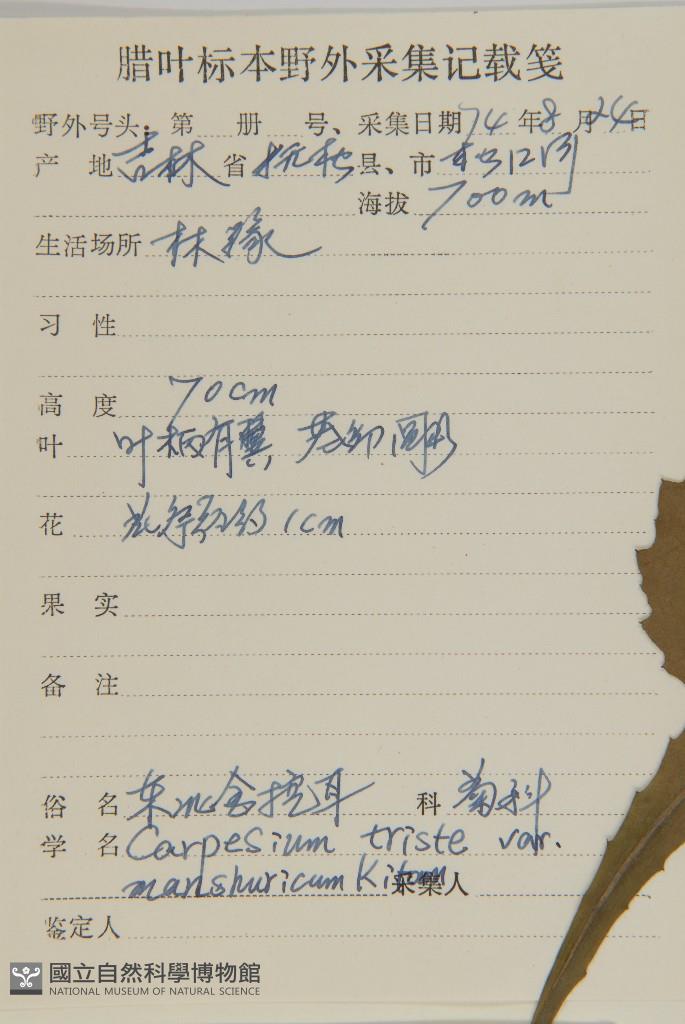 腊叶标本野外采集记载笺
野外号头:第 册 号、采集日期74年8月24日
产 地 吉林 省 抚松 县、市 松江河
海拔 700m
生活场所 林缘
习 性
高 度 70cm
叶 叶柄有翼
花 1cm
果 实
备 注
俗 名 东北金挖耳 科 菊科
学 名 Carpesium triste var.
manshuricum Kitam 采集人
鉴定人
國立自然科學博物館
NATIONAL MUSEUM OF NATURAL SCIENCE